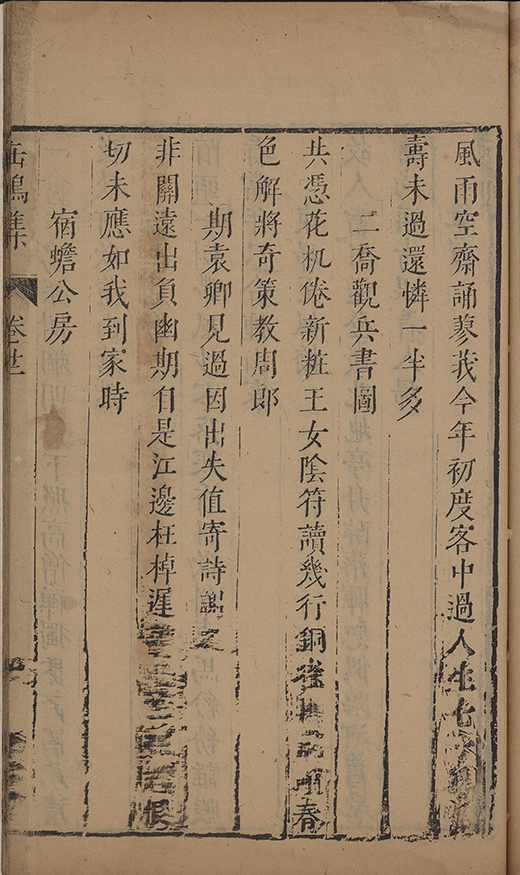 風雨空齋誦蓼莪今年初度客中過人生七
壽未過還憐一半多
二喬觀兵書圖
共憑花杌倦新粧王女陰符讀幾行銅雀春
色解將奇策教周郎
期袁卿見過因出失值寄詩
非關遠出負幽期自是江邊枉棹遲恨
切未應如我到家時
宿蟾公房
鳴集 卷廿二